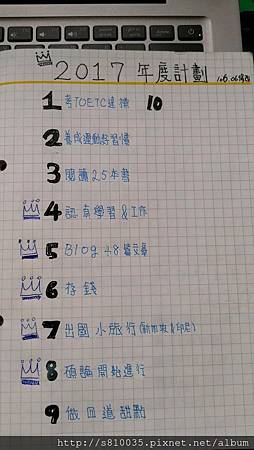 2017 年度計劃
1 考TOEIC達標 10
2 養成運動好習慣
3 閱讀25本書
4 認真學習&工作
5 Blog 48篇文章
6 存錢
7 出國小旅行(新加坡&印尼)
8 碩論開始進行
9 做四道甜點
http://s810035.pixnet.net/album